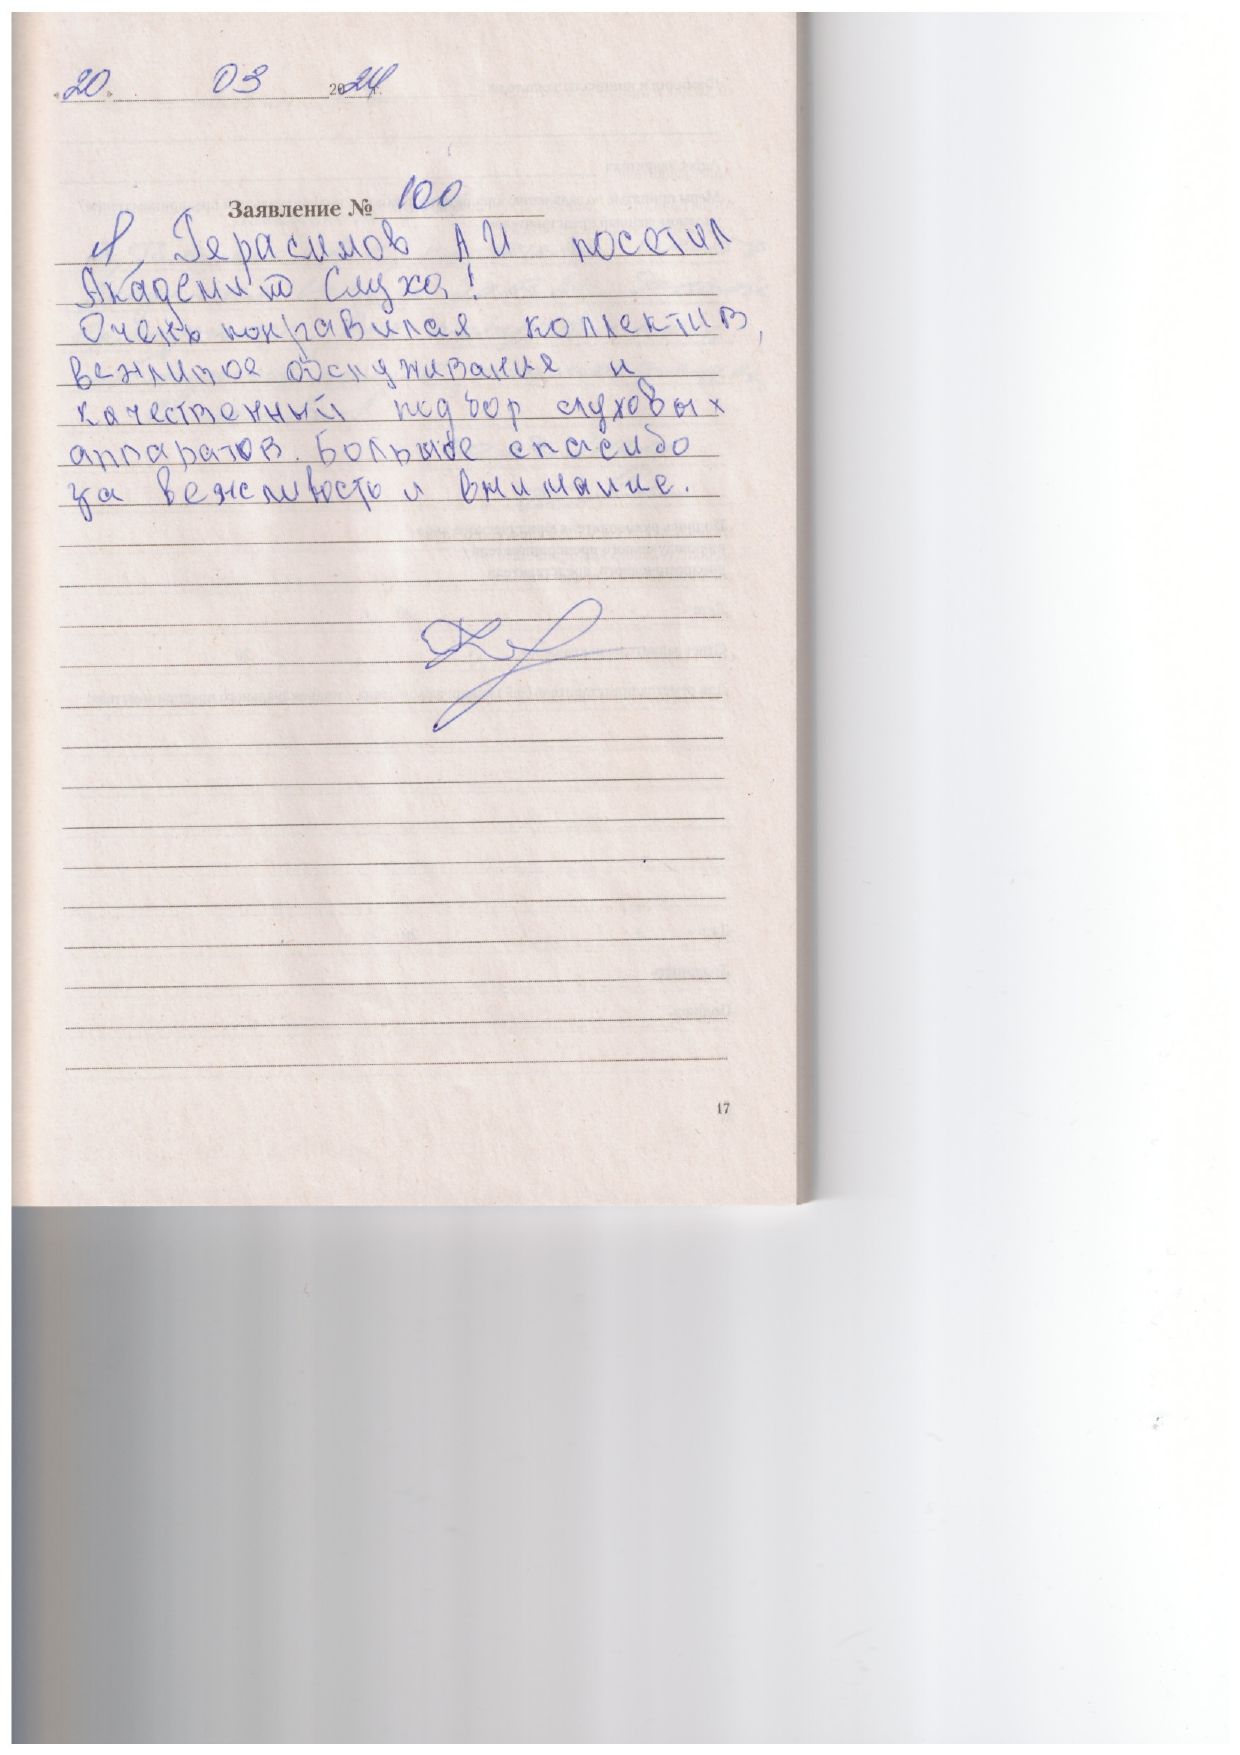 «20» 03 2024г.
Заявление № 100
Я, Герасимов А И посетил
Академию Слуха!
Очень понравилая коллектив,
вежливое обслуживание и
качественный подбор слуховых
аппаратов. Большое спасибо
за вежливость и внимание.
17